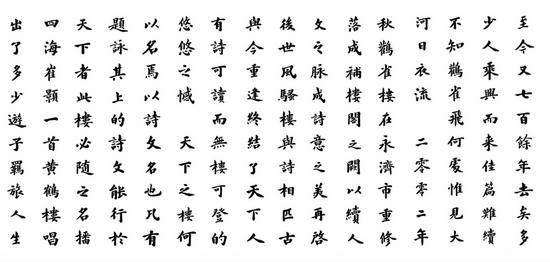 至今又七百餘年去矣多
少人乘興而來佳篇難續
不知鸛雀飛何處惟見大
河日衣流 二零零二年
秋鸛雀樓在永濟市重修
落成補樓閣之闕以續人
文之脉成詩意之美再啓
後世風騷樓與詩相匹古
與今重逢終結了天下人
有詩可讀而無樓可登的
悠悠之憾 天下之樓何
以名焉以詩文名也凡有
題詠其上的詩文能行於
天下者此樓必隨之名播
四海崔顥一首黃鶴樓唱
出了多少遊子羈旅人生